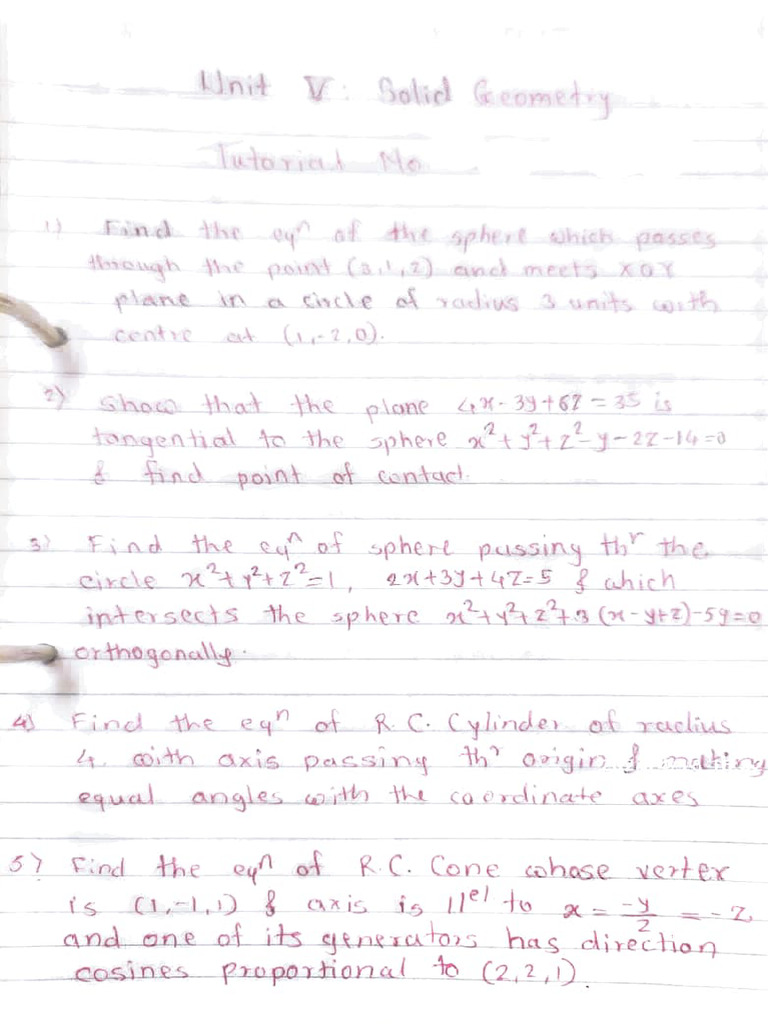 Unit V: Solid Geometry
Tutorial No
1) Find the eqⁿ of the sphere which passes
through the point (3,1,2) and meets XOY
plane in a circle of radius 3 units with
centre at (1,-2,0).
2) Show that the plane 4x-3y+6z=35 is
tangential to the sphere x²+y²+z²-y-2z-14=0
& find point of contact.
3) Find the eqⁿ of sphere passing thʳ the
circle x²+y²+z²=1, 2x+3y+4z=5 & which
intersects the sphere x²+y²+z²+3(x-y+z)-5y=0
orthogonally.
4) Find the eqⁿ of R.C. Cylinder of radius
4 with axis passing thʳ origin & making
equal angles with the coordinate axes
5) Find the eqⁿ of R.C. Cone whose vertex
is (1,-1,1) & axis is ||el to x = -y/2 = -z
and one of its generators has direction
cosines proportional to (2,2,1).